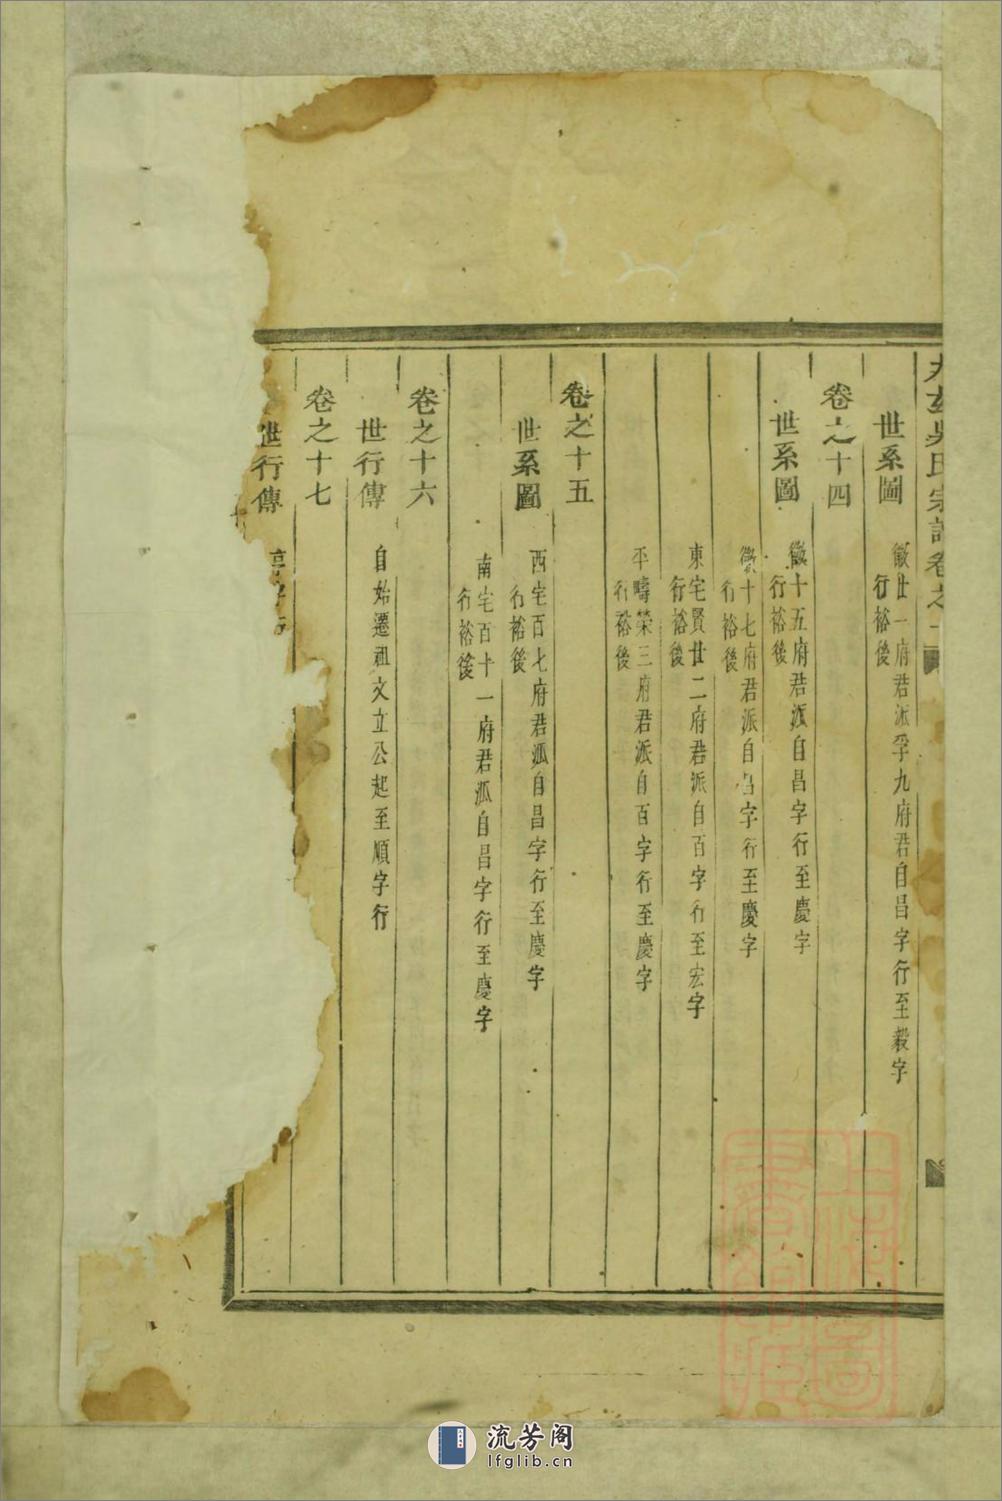 吳氏宗譜卷之
世系圖 徽廿一府君派孚九府君自昌字行至毅字
行裕後
卷之十四
世系圖 徽十五府君派自昌字行至慶字
行裕後
徽十七府君派自昌字行至慶字
行裕後
東宅賢廿二府君派自百字行至宏字
行裕後
平疇榮三府君派自百字行至慶字
行裕後
卷之十五
世系圖 西宅百七府君派自昌字行至慶字
行裕後
南宅百十一府君派自昌字行至慶字
行裕後
卷之十六
世行傳 自始遷祖文立公起至順字行
卷之十七
世行傳
上海圖書館藏
流芳阁
lfglib.cn